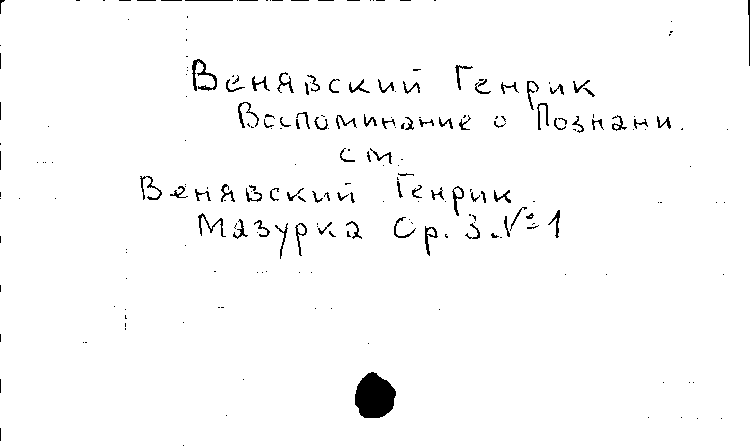 Венявский Генрик
Воспоминание о Познани.
см.
Венявский Генрик.
Мазурка Op. 3. № 1